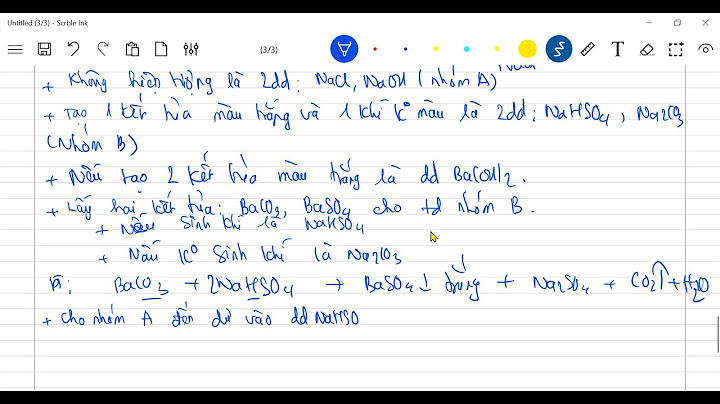 Untitled (3/3) - Scrble Ink
(3/3)
+ Không hiện tượng là 2dd: NaCl, NaOH (nhóm A)
+ Tạo 1 kết tủa màu trắng và 1 khí K° màu là 2dd: NaHSO4, Na2CO3
(Nhóm B)
+ Nếu tạo 2 kết tủa màu trắng là dd Ba(OH)2.
+ Lấy hai kết tủa: BaCO3, BaSO4 cho td nhóm B.
+ Nếu sinh khí là NaHSO4
+ Nếu K° sinh khí là Na2CO3
BaCO3 + 2NaHSO4 → BaSO4↓ trắng + Na2SO4 + CO2↑ + H2O
+ Cho nhóm A đến dư vào dd NaHSO